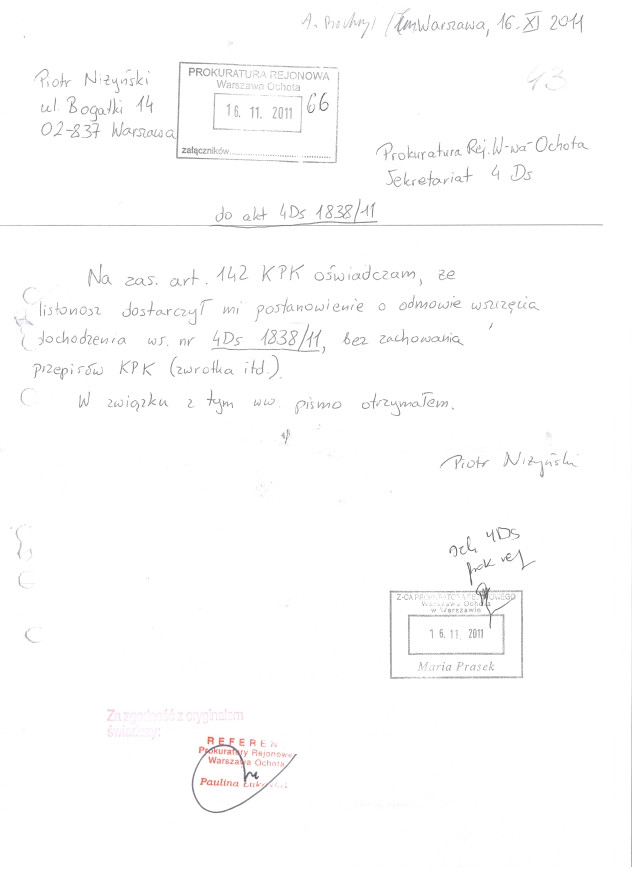 Warszawa, 16. XI 2011
43
Piotr Niżyński
ul. Bogatki 14
02-837 Warszawa
PROKURATURA REJONOWA
Warszawa Ochota
16. 11. 2011
66
załączników
Prokuratura Rej. W-wa-Ochota
Sekretariat 4 Ds
do akt 4Ds 1838/11
Na zas. art. 142 KPK oświadczam, że
listonosz dostarczył mi postanowienie o odmowie wszczęcia
dochodzenia ws. nr 4Ds 1838/11, bez zachowania
przepisów KPK (zwrotka itd.).
W związku z tym ww. pismo otrzymałem.
Piotr Niżyński
4Ds
Z-CA PROKURATORA REJONOWEGO
Warszawa Ochota
w Warszawie
16. 11. 2011
Maria Prasek
Za zgodność z oryginałem
świadczy:
REFEREN
Prokuratury Rejonowej
Warszawa Ochota
Paulina